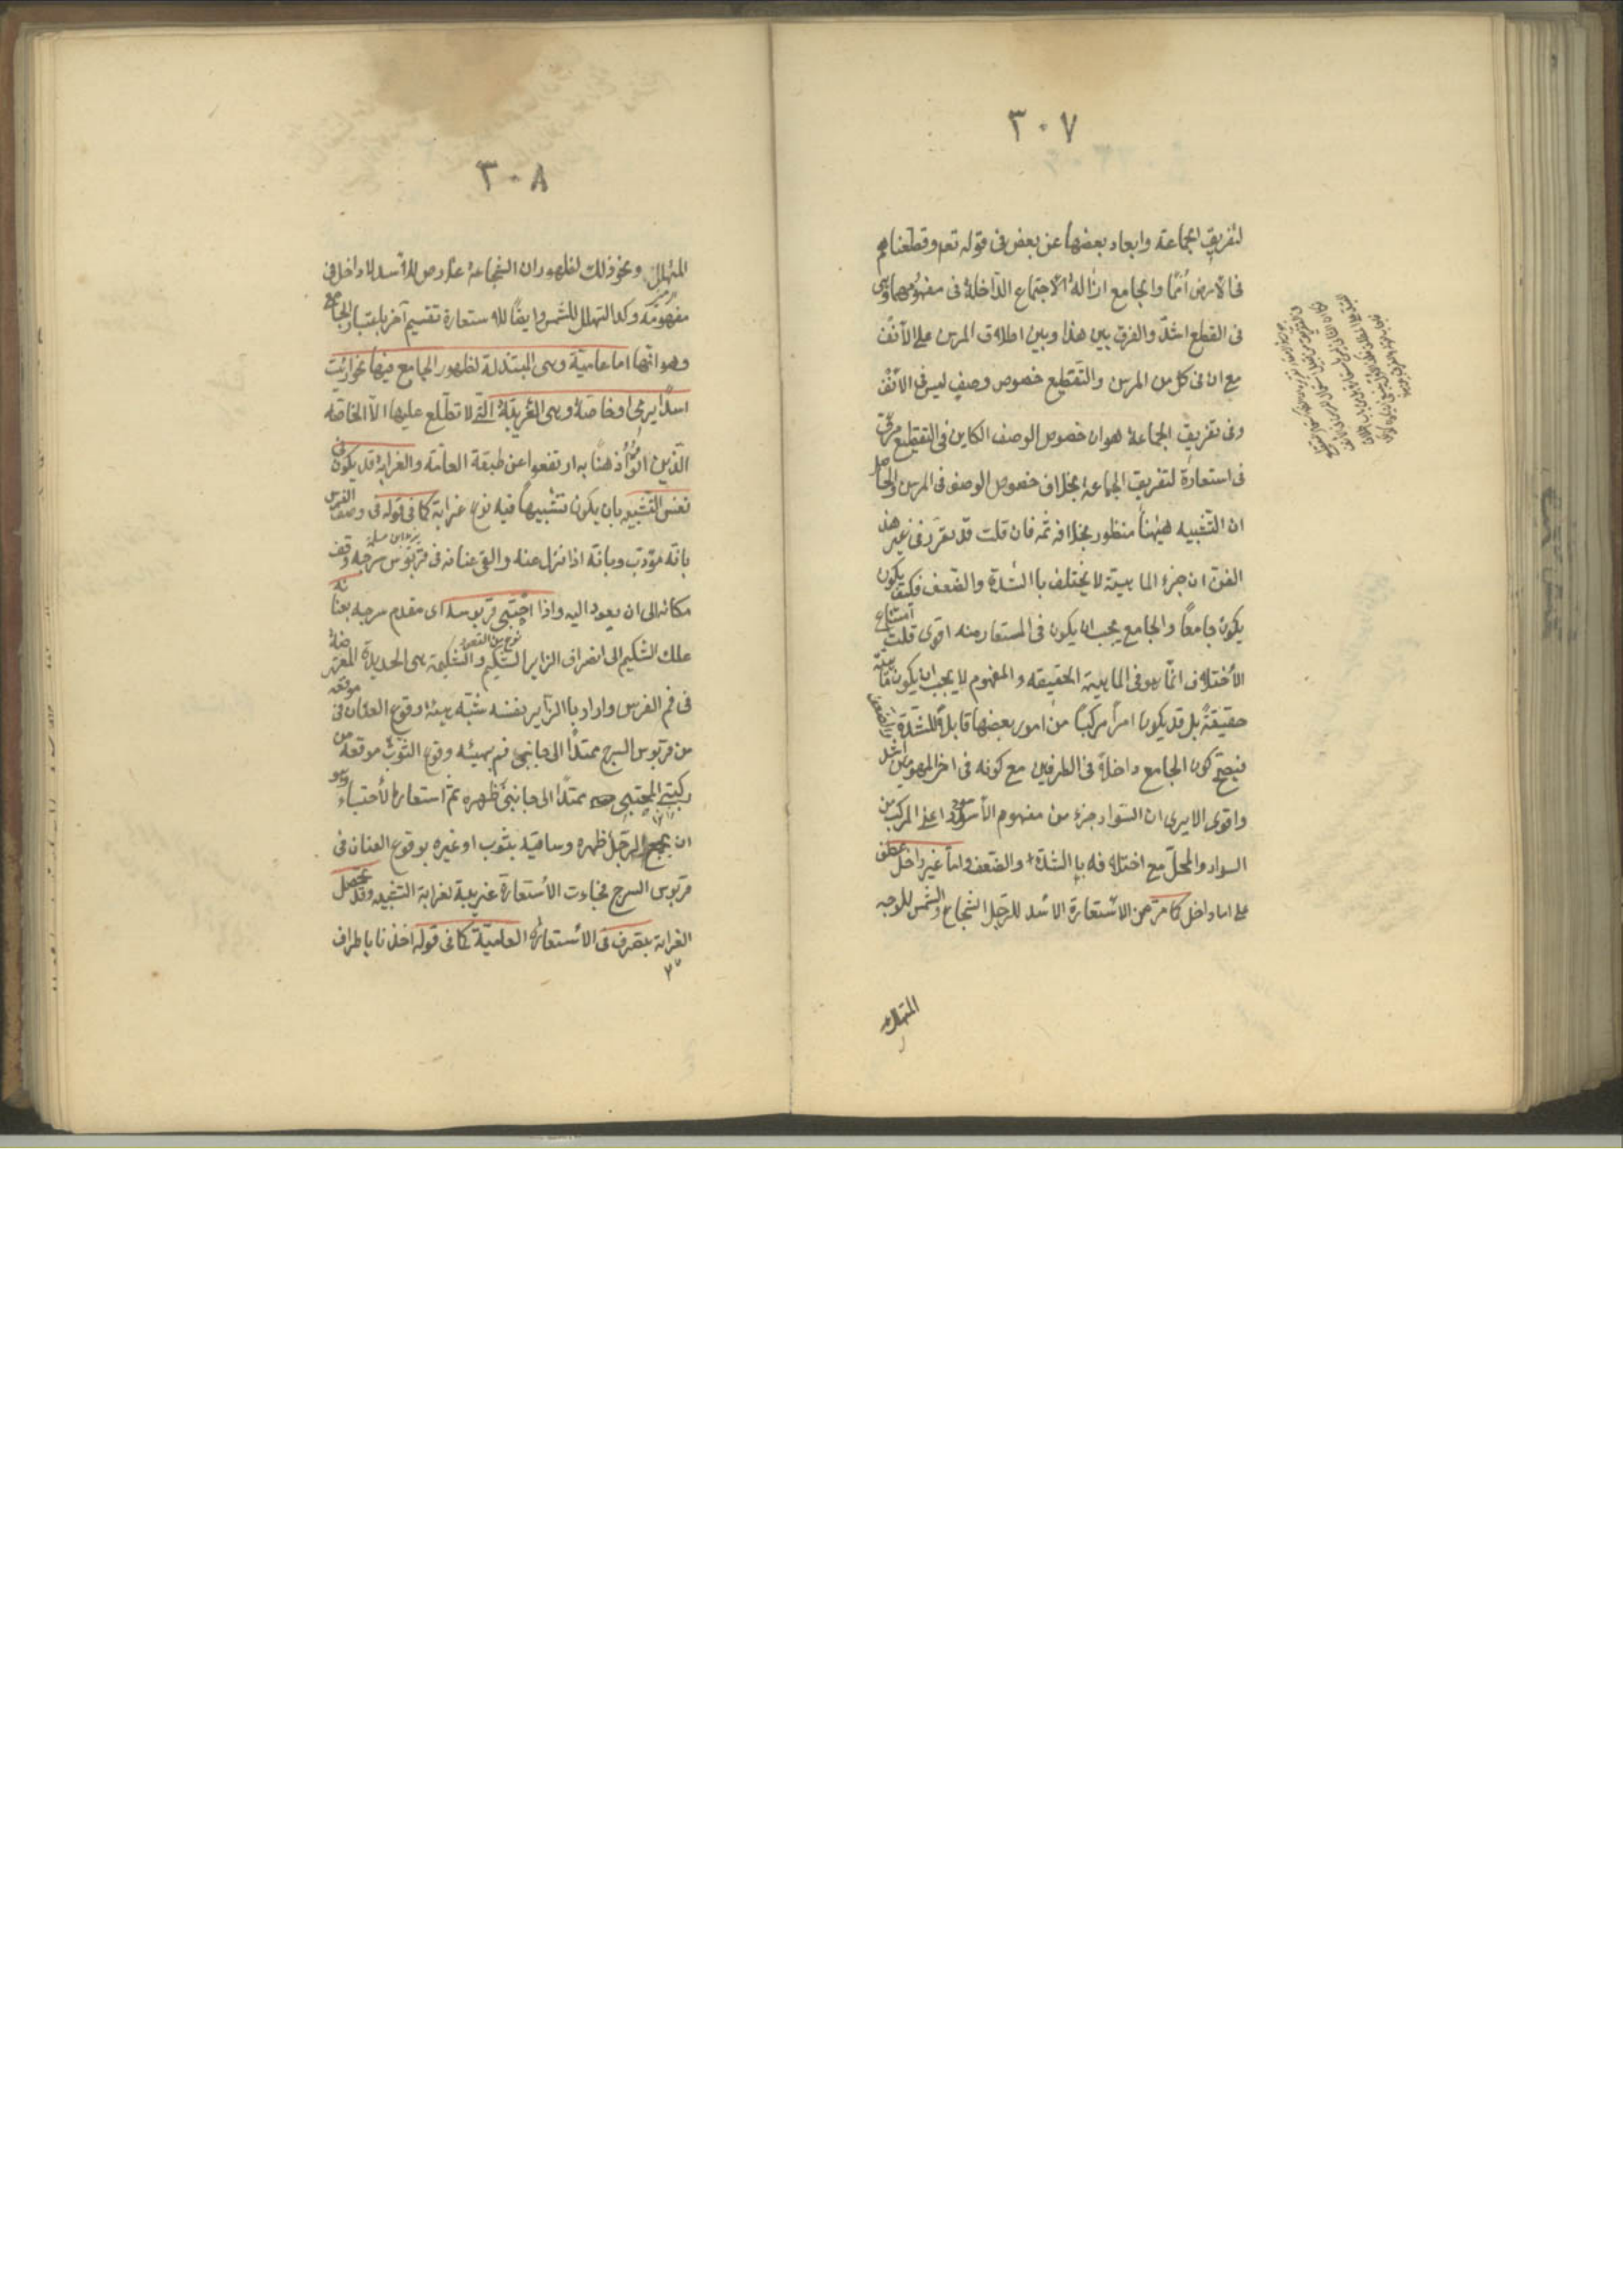 ٣٠٧
لتفريق الجماعة وابعاد بعضها عن بعض فى قوله تعم وقطعناهم
فى الأرض أمما والجامع ازالة الاجتماع الداخلة فى مفهومهما وهى
فى القطع اشد والفرق بين هذا وبين اطلاق المرسن على الأنف
مع ان فى كل من المرسن والتقطيع خصوص وصف ليس فى الأنف
وفى تفريق الجماعة هو ان خصوص الوصف الكاين فى التقطيع مرعى
فى استعارة لتفريق الجماعة بخلاف خصوص الوصف فى المرسن والحاصل
ان التشبيه ههنا منظور بخلافه ثمه فان قلت قد تقرر فى غير هذا
الفن ان جزء الماهية لا يختلف بالشدة والضعف فكيف يكون
يكون جامعاً والجامع يجب ان يكون فى المستعار منه اقوى قلت امتناع
الأختلاف انما هو فى الماهية الحقيقه والمفهوم لا يجب ان يكون ماهية
حقيقةً بل قد يكون امراً مركباً من امور بعضها قابلةً للشدة والضعف
فيصح كون الجامع داخلاً فى الطرفين مع كونه فى احد المفهومين اشد
واقوى الا يرى ان السواد جزء من مفهوم الأسود اعنى المركب من
السواد والمحل مع اختلافه بالشدة والضعف واما غير داخل عطف
على اما داخل كما مر من الاستعارة الاسد للرجل الشجاع والشمس للوجه
المتهلل
٣٠٨
المتهلل ونحو ذلك لظهور ان الشجاعة عارض للأسد لا داخل فى
مفهومه وكذا التهلل للشمس وايضاً للاستعارة تقسيم آخر باعتبار الجامع
وهو انها اما عامية وهى المبتذلة لظهور الجامع فيها نحو رايت
اسداً يرمى او خاصة وهى الغريبة التى لا تطلع عليها الا الخاصة
الذين اوتوا ذهناً به ارتفعوا عن طبقة العامة والغرابة قد يكون فى
نفس التشبيه بان يكون تشبيهاً فيه نوع غرابة كما فى قوله فى وصف الفرس
بانه مؤدب وبانه اذا نزل عنه والقى عنانه فى قربوس سرجه وقف
مكانه الى ان يعود اليه واذا احتبى قربوسه اى مقدم سرجه بعنانه
علك الشكيم الى انصراف الزاير الشكيم والشكيمة هى الحديدة المعترضة
فى فم الفرس واراد بالزاير نفسه شبه هيئة وقوع العنان فى موقعه
من قربوس السرج ممتداً الى جانبى فم بهيئه وقوع الثوب موقعه من
ركبتى المحتبى ممتداً الى جانبى ظهره ثم استعار الأحتباء وهو
ان يجمع الرجل ظهره وساقيه بثوب او غيره بوقوع العنان فى
قربوس السرج فجاءت الأستعارة غريبة لغرابة التشبيه وقد تحصل
الغرابة بتصرف فى الأستعارة العامية كما فى قوله اخذنا باطراف